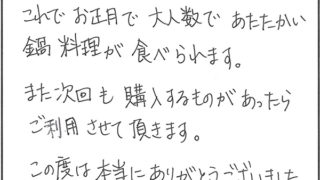 これで お正月で 大人数で あたたかい
鍋 料理が 食べられます。
また次回も 購入するものがあったら
ご利用 させて 頂きます。
この度は 本当に ありがとうございました